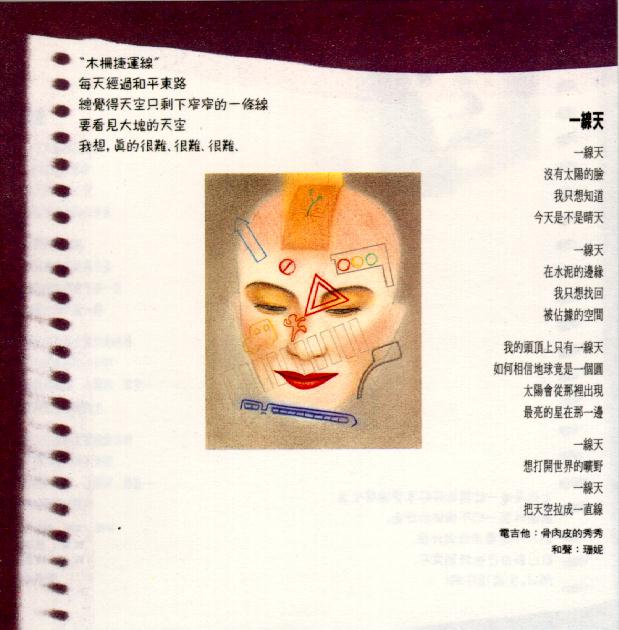 "木柵捷運線"
每天經過和平東路
總覺得天空只剩下窄窄的一條線
要看見大塊的天空
我想，真的很難、很難、很難、
一線天
一線天
沒有太陽的臉
我只想知道
今天是不是晴天
一線天
在水泥的邊緣
我只想找回
被佔據的空間
我的頭頂上只有一線天
如何相信地球竟是一個圓
太陽會從那裡出現
最亮的星在那一邊
一線天
想打開世界的曠野
一線天
把天空拉成一直線
電吉他：骨肉皮的秀秀
和聲：珊妮